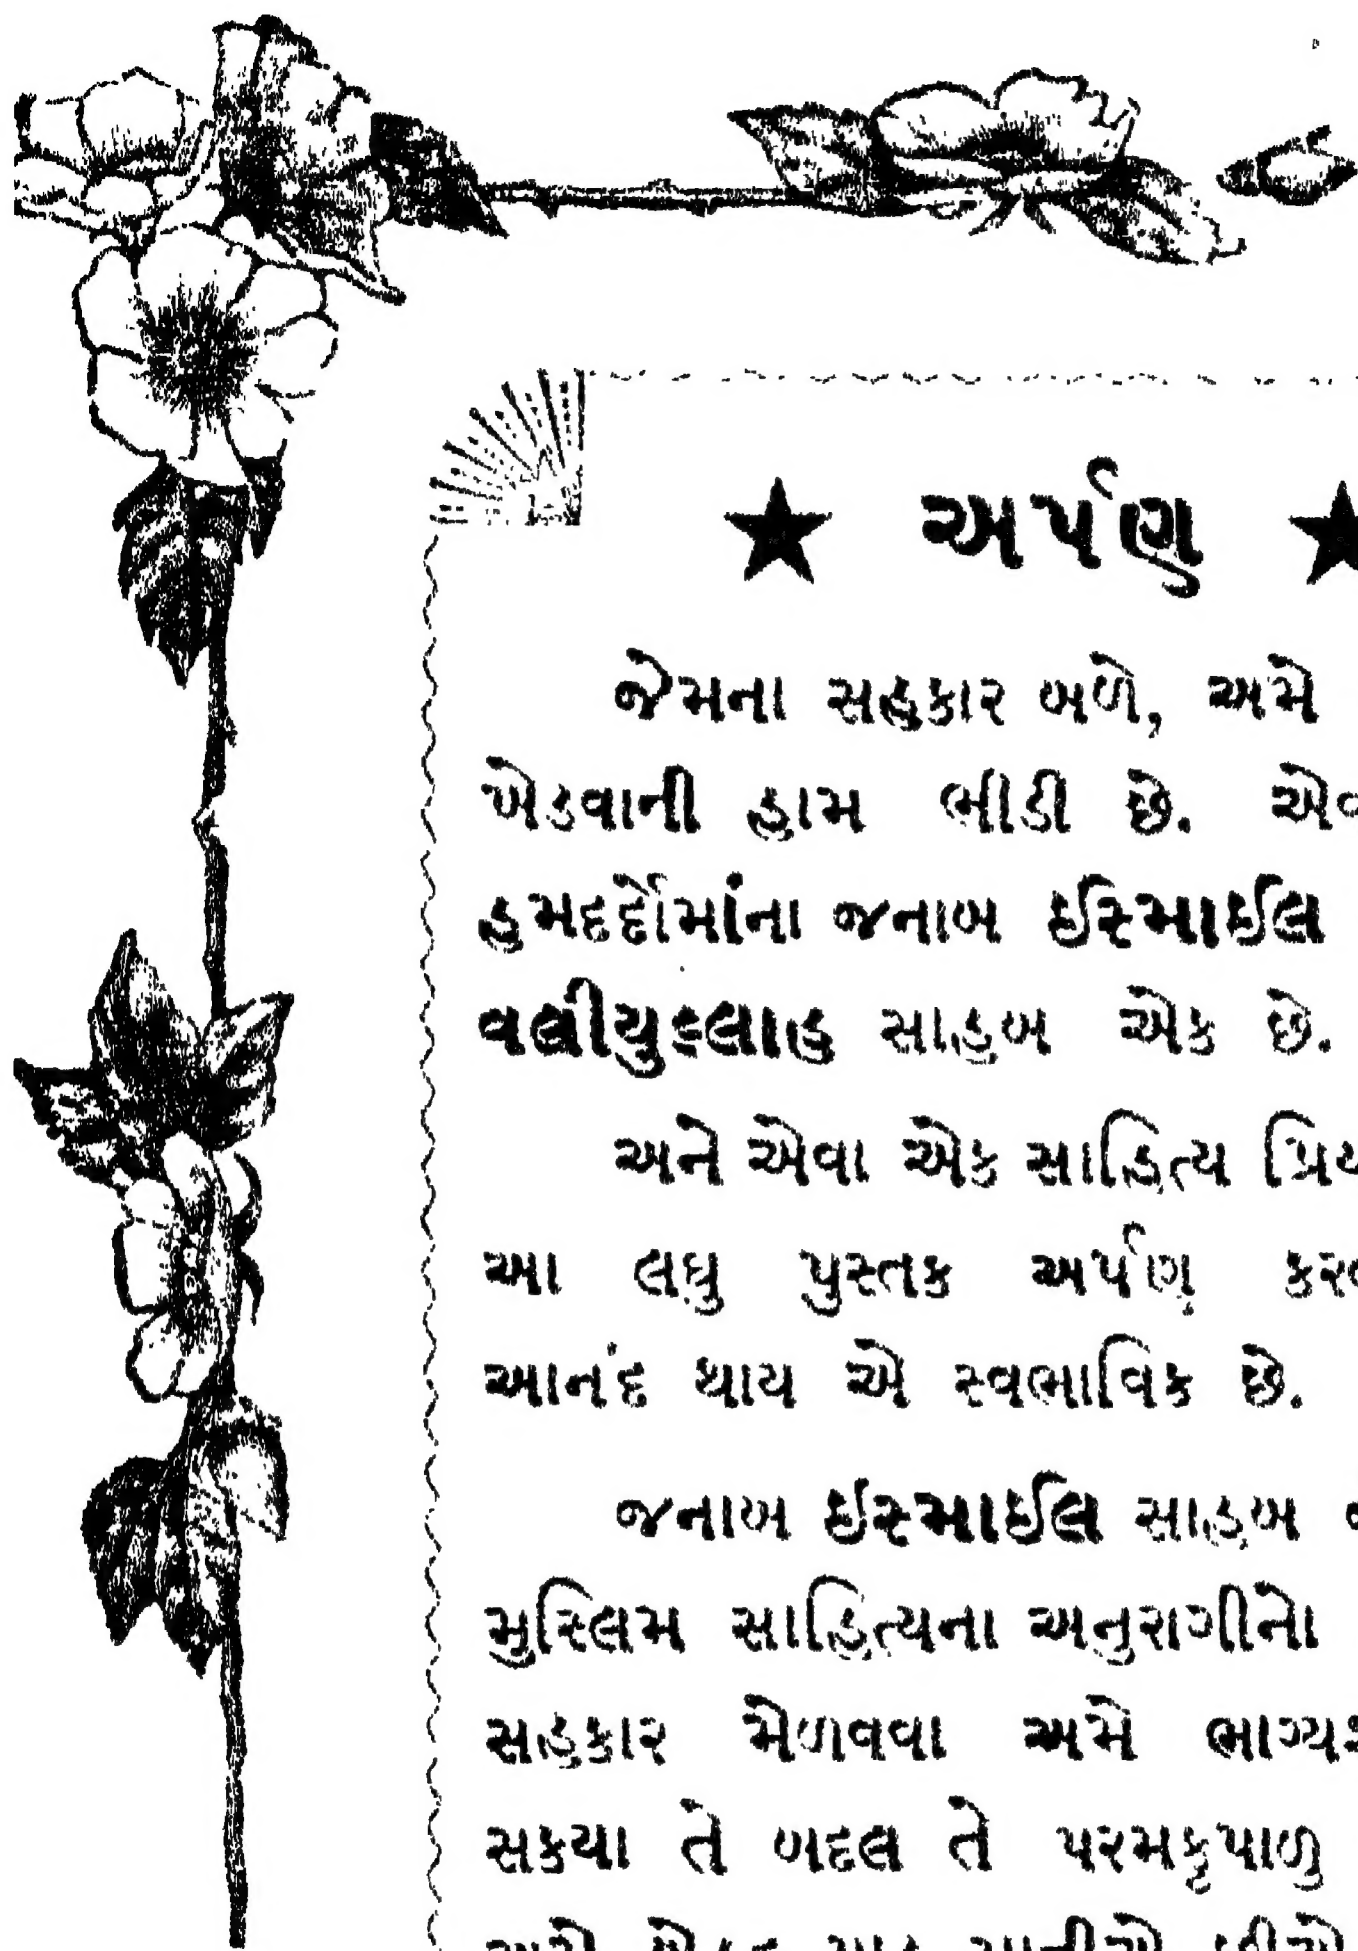 ★ અર્પણ ★
જેમના સહકાર બળે, અમે
ખેડવાની હામ ભીડી છે.
હમદર્દોમાંના જનાબ ઈસ્માઈલ
વલીયુલ્લાહ સાહબ એક છે.
અને એવા એક સાહિત્ય પ્રિય
આ લઘુ પુસ્તક અર્પણ
આનંદ થાય એ સ્વભાવિક છે.
જનાબ ઈસ્માઈલ સાહબ
મુસ્લિમ સાહિત્યના અનુરાગીનો
સહકાર મેળવવા અમે
સકયા તે બદલ તે પરમકૃપાળુ